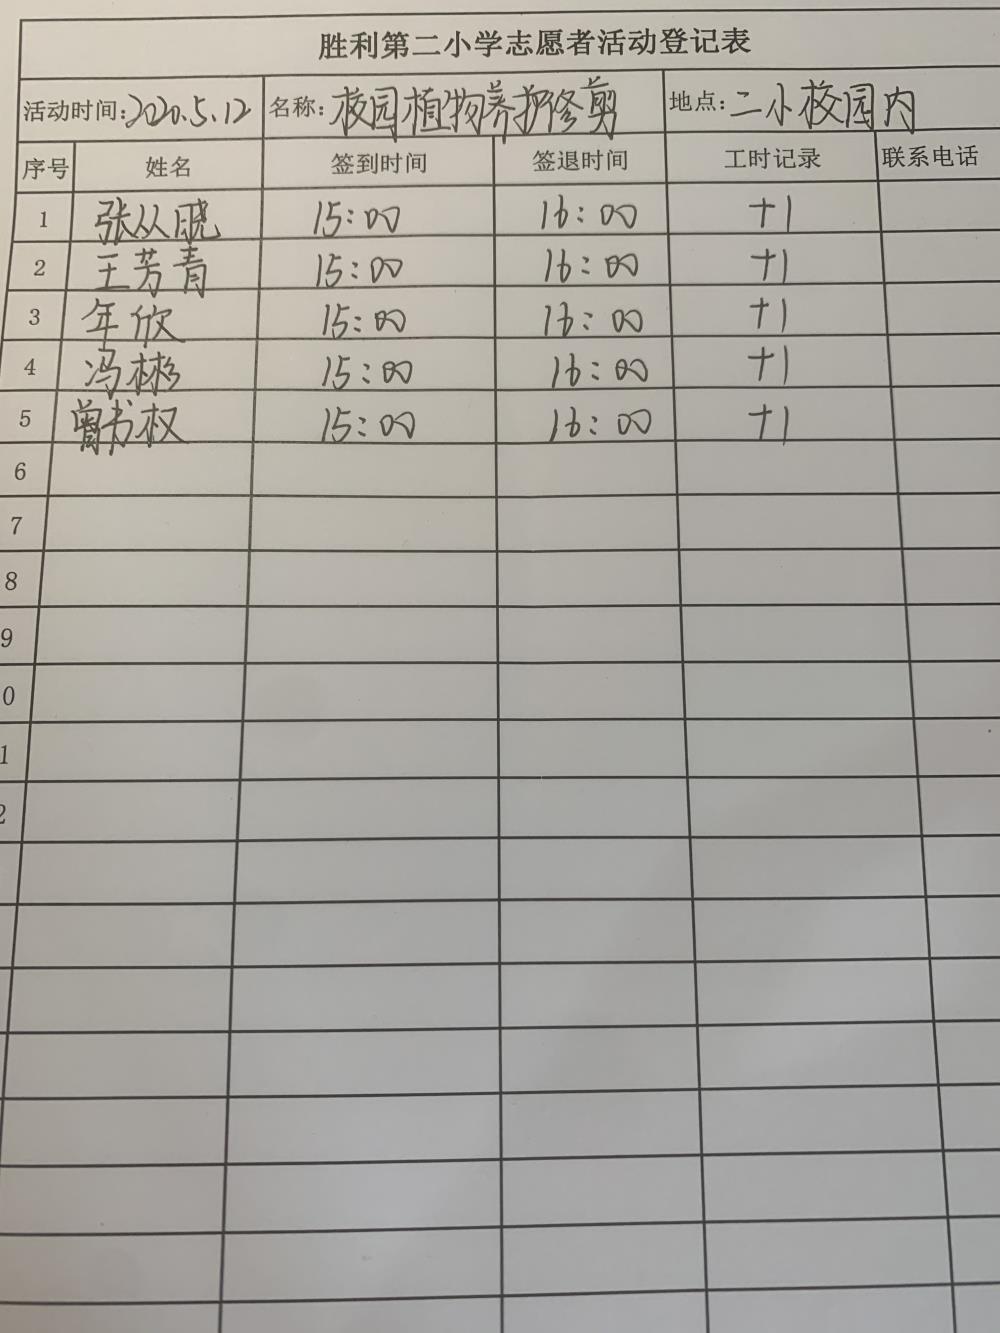 胜利第二小学志愿者活动登记表
活动时间:2020.5.12 名称:校园植物养护修剪 地点:二小校园内
序号 姓名 签到时间 签退时间 工时记录 联系电话
1 张从晓 15:00 16:00 +1
2 王芳青 15:00 16:00 +1
3 年欣 15:00 16:00 +1
4 冯彬 15:00 16:00 +1
5 曾书权 15:00 16:00 +1
6
7
8
9
0
1
2